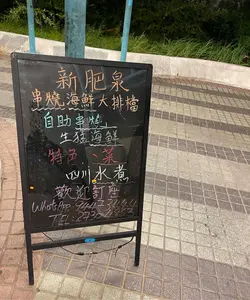 新肥泉
串燒海鮮大排檔
自助串燒
生猛海鮮
特色小菜
四川水煮
歡迎訂座
WhatsApp
TEL: